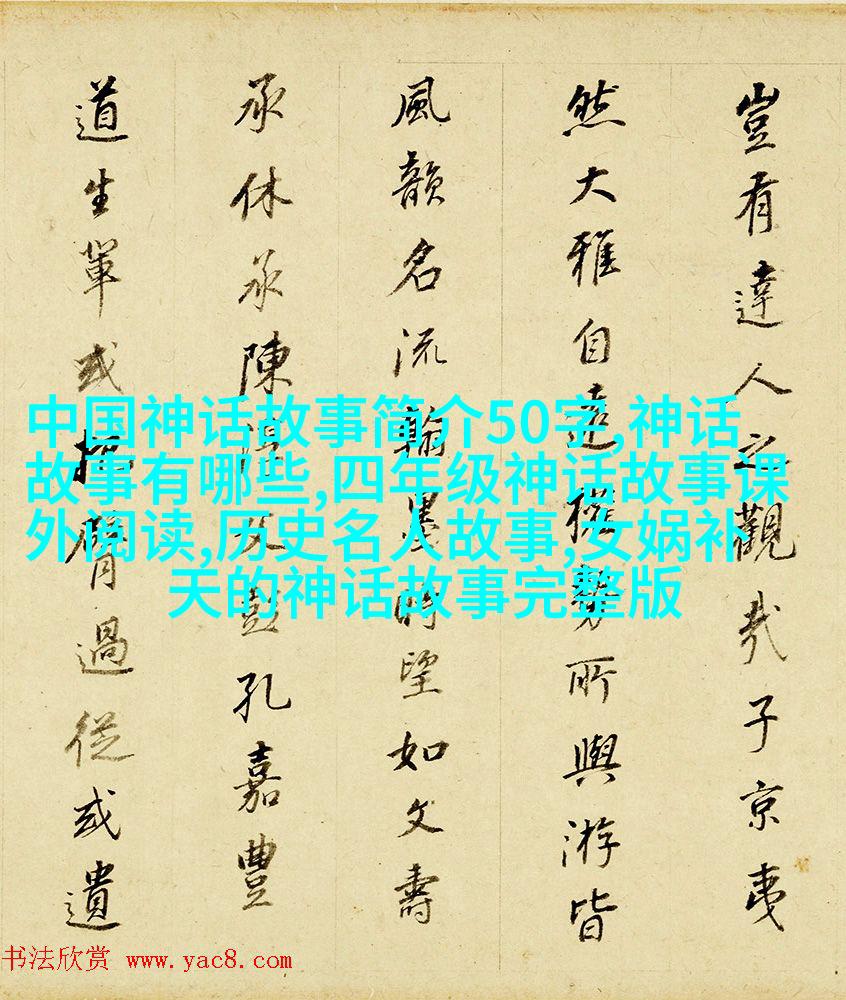 豈有達人之觀哉子京夷
然大雅自遠權勢所與游皆
風韻名流翰墨時望如文壽
承休承陳淳父彭孔嘉豐
道生輩或把臂過從或遺
中国神话故事简介50字,神话
故事有哪些,四年级神话故事课
外阅读,历史名人故事,女娲补
天的神话故事完整版
书法欣赏 www.yac8.com